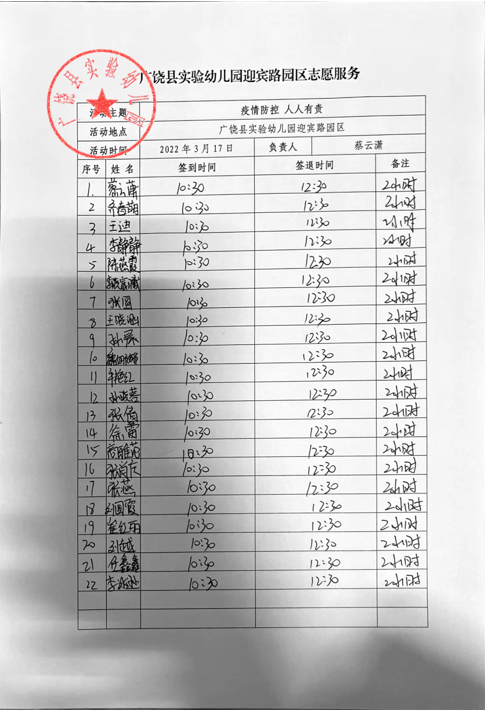 广饶县实验幼儿园迎宾路园区志愿服务
广饶县实验幼儿园
活动主题 疫情防控 人人有责
活动地点 广饶县实验幼儿园迎宾路园区
活动时间 2022年3月17日 负责人 蔡云潇
序号 姓名 签到时间 签退时间 备注
1. 蔡云潇 10:30 12:30 2小时
2 10:30 12:30 2小时
3 王迪 10:30 12:30 2小时
4 李静静 10:30 12:30 2小时
5 10:30 12:30 2小时
6 10:30 12:30 2小时
7 10:30 12:30 2小时
8 10:30 12:30 2小时
9 10:30 12:30 2小时
10 10:30 12:30 2小时
11 10:30 12:30 2小时
12 10:30 12:30 2小时
13 张倩 10:30 12:30 2小时
14 徐蕾 10:30 12:30 2小时
15 10:30 12:30 2小时
16 10:30 12:30 2小时
17 张燕 10:30 12:30 2小时
18 刘国霞 10:30 12:30 2小时
19 10:30 12:30 2小时
20 刘越 10:30 12:30 2小时
21 任鑫鑫 10:30 12:30 2小时
22 10:30 12:30 2小时